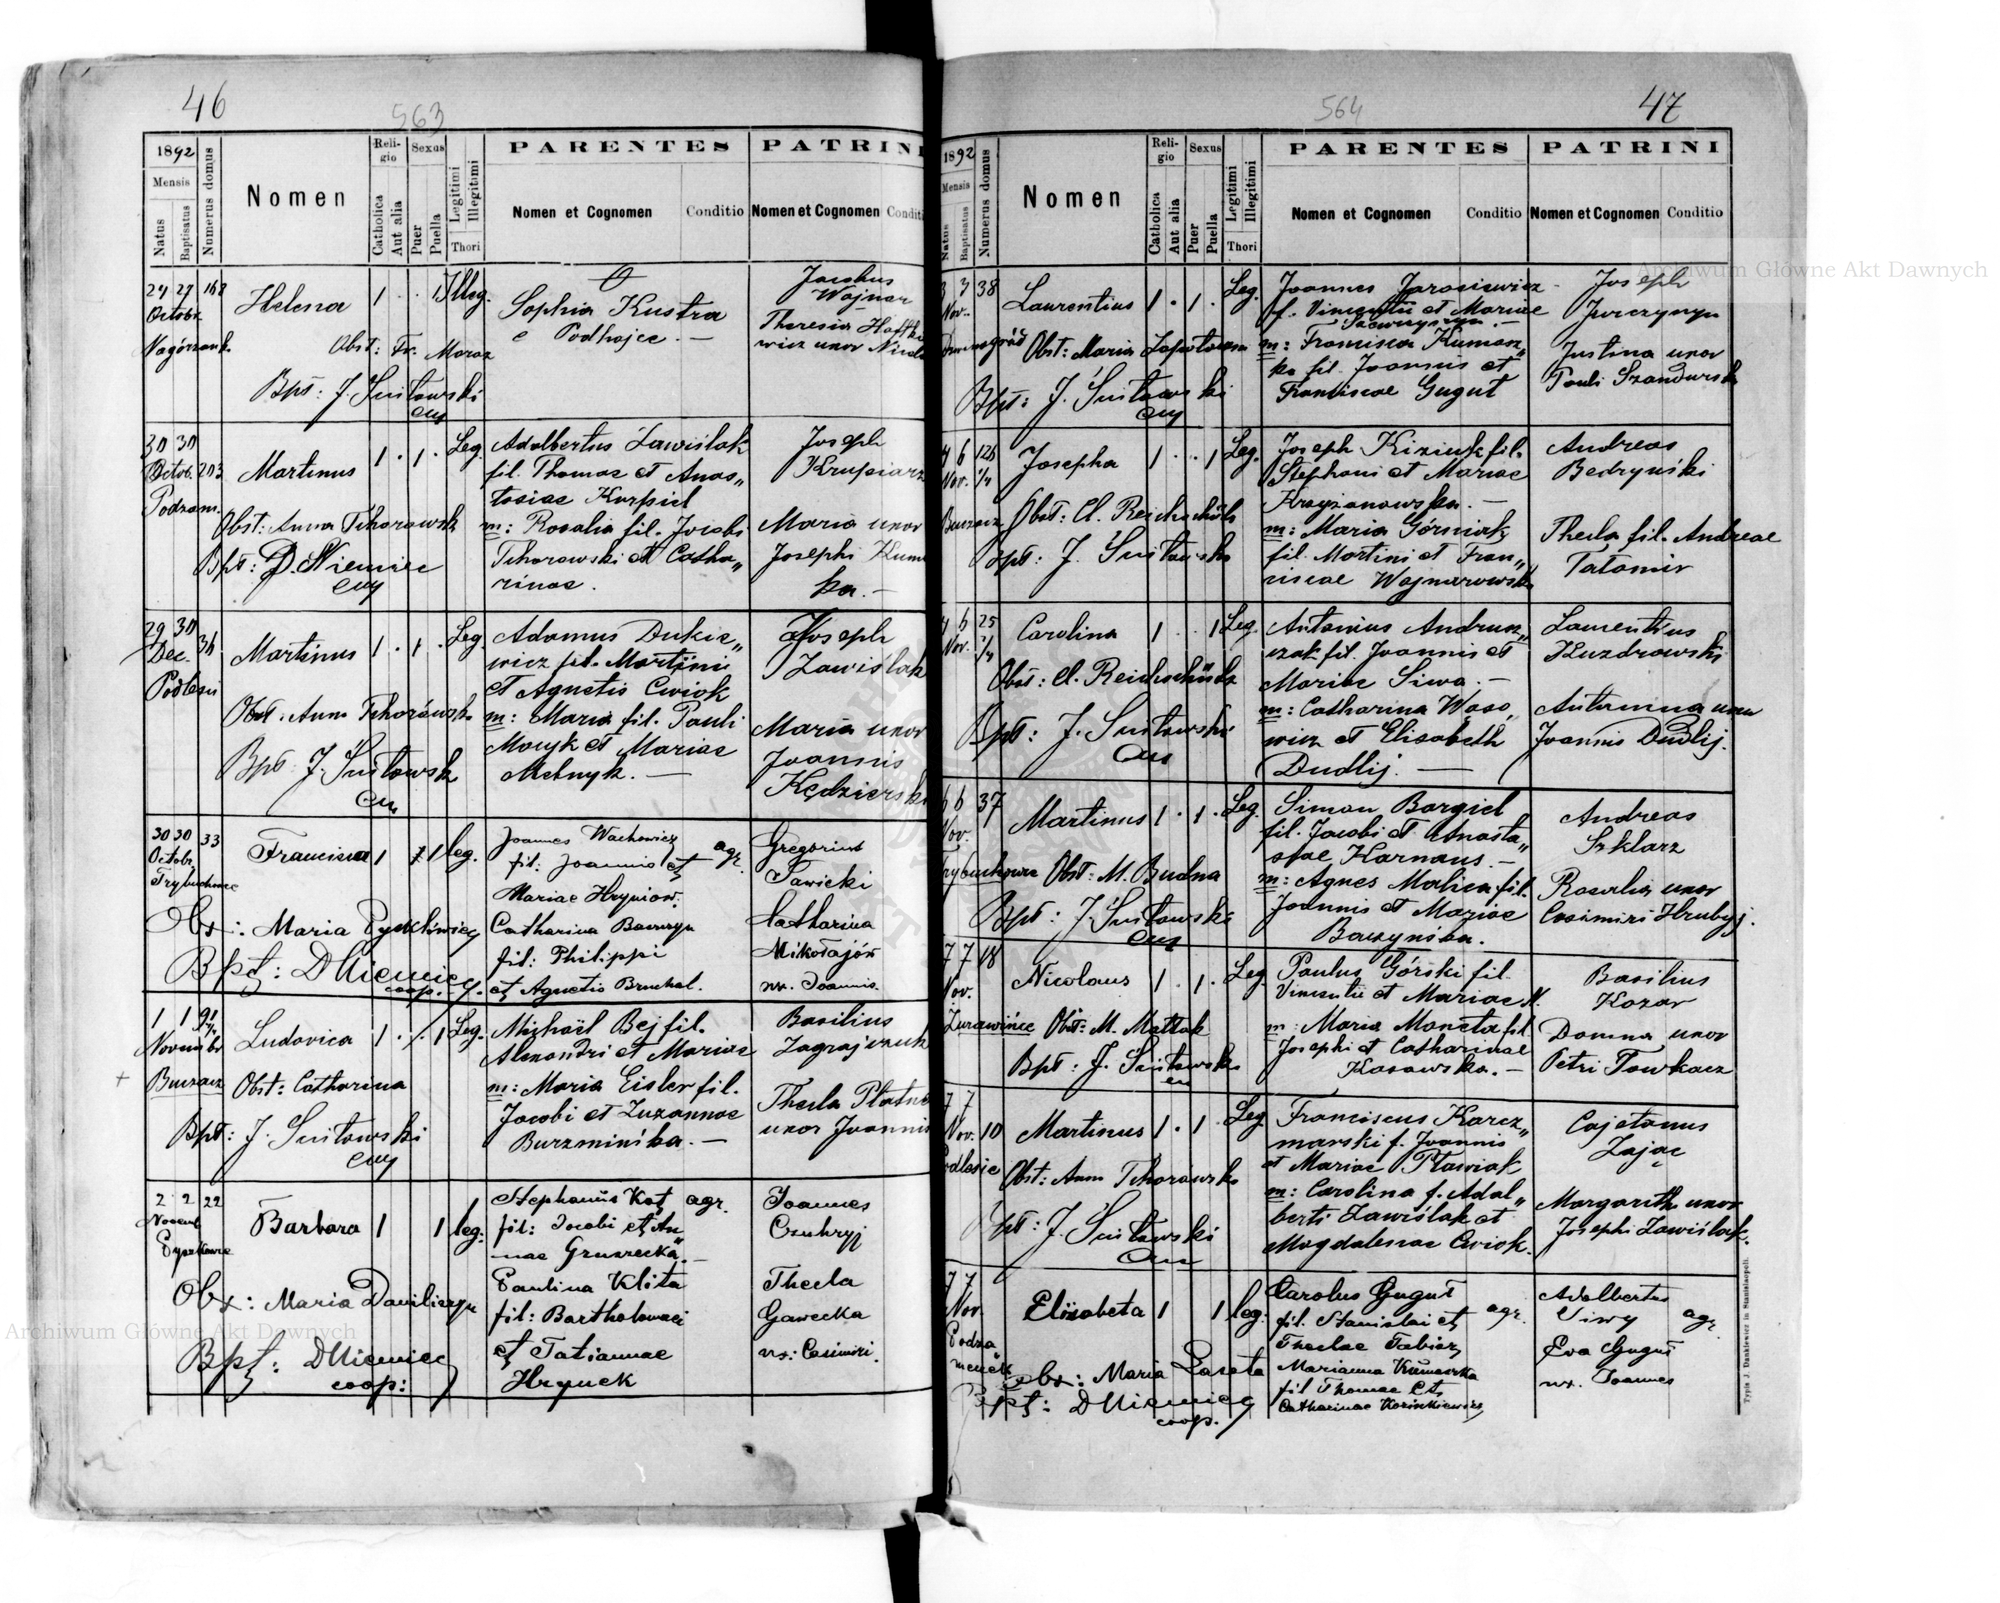 46
563
1892
Mensis
Natus
Baptisatus
Numerus domus
Nomen
Religio
Catholica
Aut alia
Sexus
Puer
Puella
Legitimi
Illegitimi
Thori
PARENTES
Nomen et Cognomen
Conditio
PATRINI
Nomen et Cognomen
Conditi
27 29 168
Octobr.
Helena 1 . . 1 Illeg.
Sophia Kustra
e Podhajce. —
Jacobus
Wojnar
Theresia
wicz uxor
Obst: Fr. Moroz
Bpt: J. Suitowski
30 30
Octob. 203
Podzam.
Martinus 1 . 1 . Leg.
Adalbertus Zawiślak
fil. Thomae et Anas„
tasiae Kurpiel
m: Rosalia fil. Jacobi
Tchorowski et Catha„
rinae.
Joseph
Krupiarz
Maria uxor
Josephi Kum
ka. —
Obst: Anna Tchorowsk
Bpt: D. Niemiec
29 30 36
Dec.
Podlesie
Martinus 1 . 1 . Leg.
Adamus Dukie„
wicz fil. Martini
et Agnetis Cwiok
m: Maria fil. Pauli
Mocyk et Mariae
Melnyk. —
Joseph
Zawiślak
Maria uxor
Joannis
Kędziersk
Obst: Anna Tchorowsk
Bpt. J. Suitowsk
30 30 33
Octobr.
Trybuchowce
Francisca 1 1 leg.
Joannes Wachowicz agr.
fil: Joannis et
Mariae Hryniow.
Catharina
fil: Philippi
et Agnetis Bruchal.
Gregorius
Sawicki
Catharina
Mikołajów
ux. Joannis.
Obx: Maria
Bpt: D Niemiec
coop.
1 1 91
Novembr
Buczacz
Ludovica 1 . . 1 Leg.
Michaël Bej fil.
Alexandri et Mariae
m: Maria Eisler fil.
Jacobi et Zuzannae
Burzmińska. —
Basilius
Zagrajczuk
Thecla
uxor Joannis
Obst: Catharina
Bpt: J. Suitowski
2 2 22
Novemb
Pyszkowce
Barbara 1 1 leg.
Stephanus Kot agr.
fil: Jacobi et An„
nae Gruszecka. —
Paulina Klita
fil: Bartholomaei
et Tatiannae
Hrynck
Joannes
Czuhryj
Thecla
Gawecka
ux: Casimiri.
Obx: Maria Daniliczyn
Bpt: D Niemiec
coop:
564
47
1892
Mensis
Natus
Baptisatus
Numerus domus
Nomen
Religio
Catholica
Aut alia
Sexus
Puer
Puella
Legitimi
Illegitimi
Thori
PARENTES
Nomen et Cognomen
Conditio
PATRINI
Nomen et Cognomen
Conditio
3 3 38
Nov.
Laurentius 1 . 1 . Leg.
Joannes Jarosiewicz
f. Vincentii et Mariae
m: Francisca Kumasz„
ka fil. Joannis et
Franciscae Gugut
Joseph
Jurczynyn
Justina uxor
Pauli Szandursk
Obst: Maria
Bpt: J. Suitowski
4 6 126
Nov.
Buczacz
Josepha 1 . . 1 Leg.
Joseph Kiziuk fil.
Stephani et Mariae
Krzyżanowska. —
m: Maria Górniak
fil. Martini et Fran„
ciscae Wojnarowsk
Andreas
Bedryński
Thecla fil. Andreae
Tatomir
Obst: Cl. Reichschütz
Bpt: J. Suitowsk
4 6 25
Nov.
Carolina 1 . . 1 Leg.
Antonius Andrusz„
czak fil. Joannis et
Mariae Siwa. —
m: Catharina Wąso„
wicz et Elisabeth
Dudlij. —
Laurentius
Kuzdrowski
Antonina uxor
Joannis Dudlij.
Obst: Cl. Reichschütz
Bpt: J. Suitowski
6 6 37
Nov.
Trybuchowce
Martinus 1 . 1 . Leg.
Simon Bargiel
fil. Jacobi et Anasta„
siae Karnaus. —
m: Agnes Malica fil.
Joannis et Mariae
Buczyńska.
Andreas
Szklarz
Rosalia uxor
Casimiri Hrubyj.
Obst: M. Budna
Bpt: J. Suitowski
7 7 18
Nov.
Żurawińce
Nicolaus 1 . 1 . Leg
Paulus Górski fil.
Vincentii et Mariae N.
m: Maria Moneta fil.
Josephi et Catharinae
Kosowska. —
Basilius
Kozar
Domna uxor
Petri Towkacz
Obst: M. Matlak
Bpt: J. Suitowsk
7 7
Nov. 10
Podlesie
Martinus 1 . 1 . Leg.
Franciscus Karcz„
marski f. Joannis
et Mariae Pławiak
m: Carolina f. Adal„
berti Zawiślak et
Magdalenae Cwiok.
Cajetanus
Zając
Margaritha uxor
Josephi Zawiślak.
Obst: Anna Tchorowsk
Bpt: J. Suitowski
7 7
Nov.
Podza„
mczek
Elisabeta 1 1 leg:
Carolus Gugut agr.
fil. Stanislai et
Theclae
Marianna Kumaszka
fil Thomae et
Catharinae
Adalbertus
Siwy agr.
Eva Gugut
ux. Joannes
Obx: Maria Laseta
Bpt: D Niemiec
coop.
Typis J. Dankiewicz in Stanislaopoli.
Archiwum Główne Akt Dawnych
Archiwum Główne Akt Dawnych